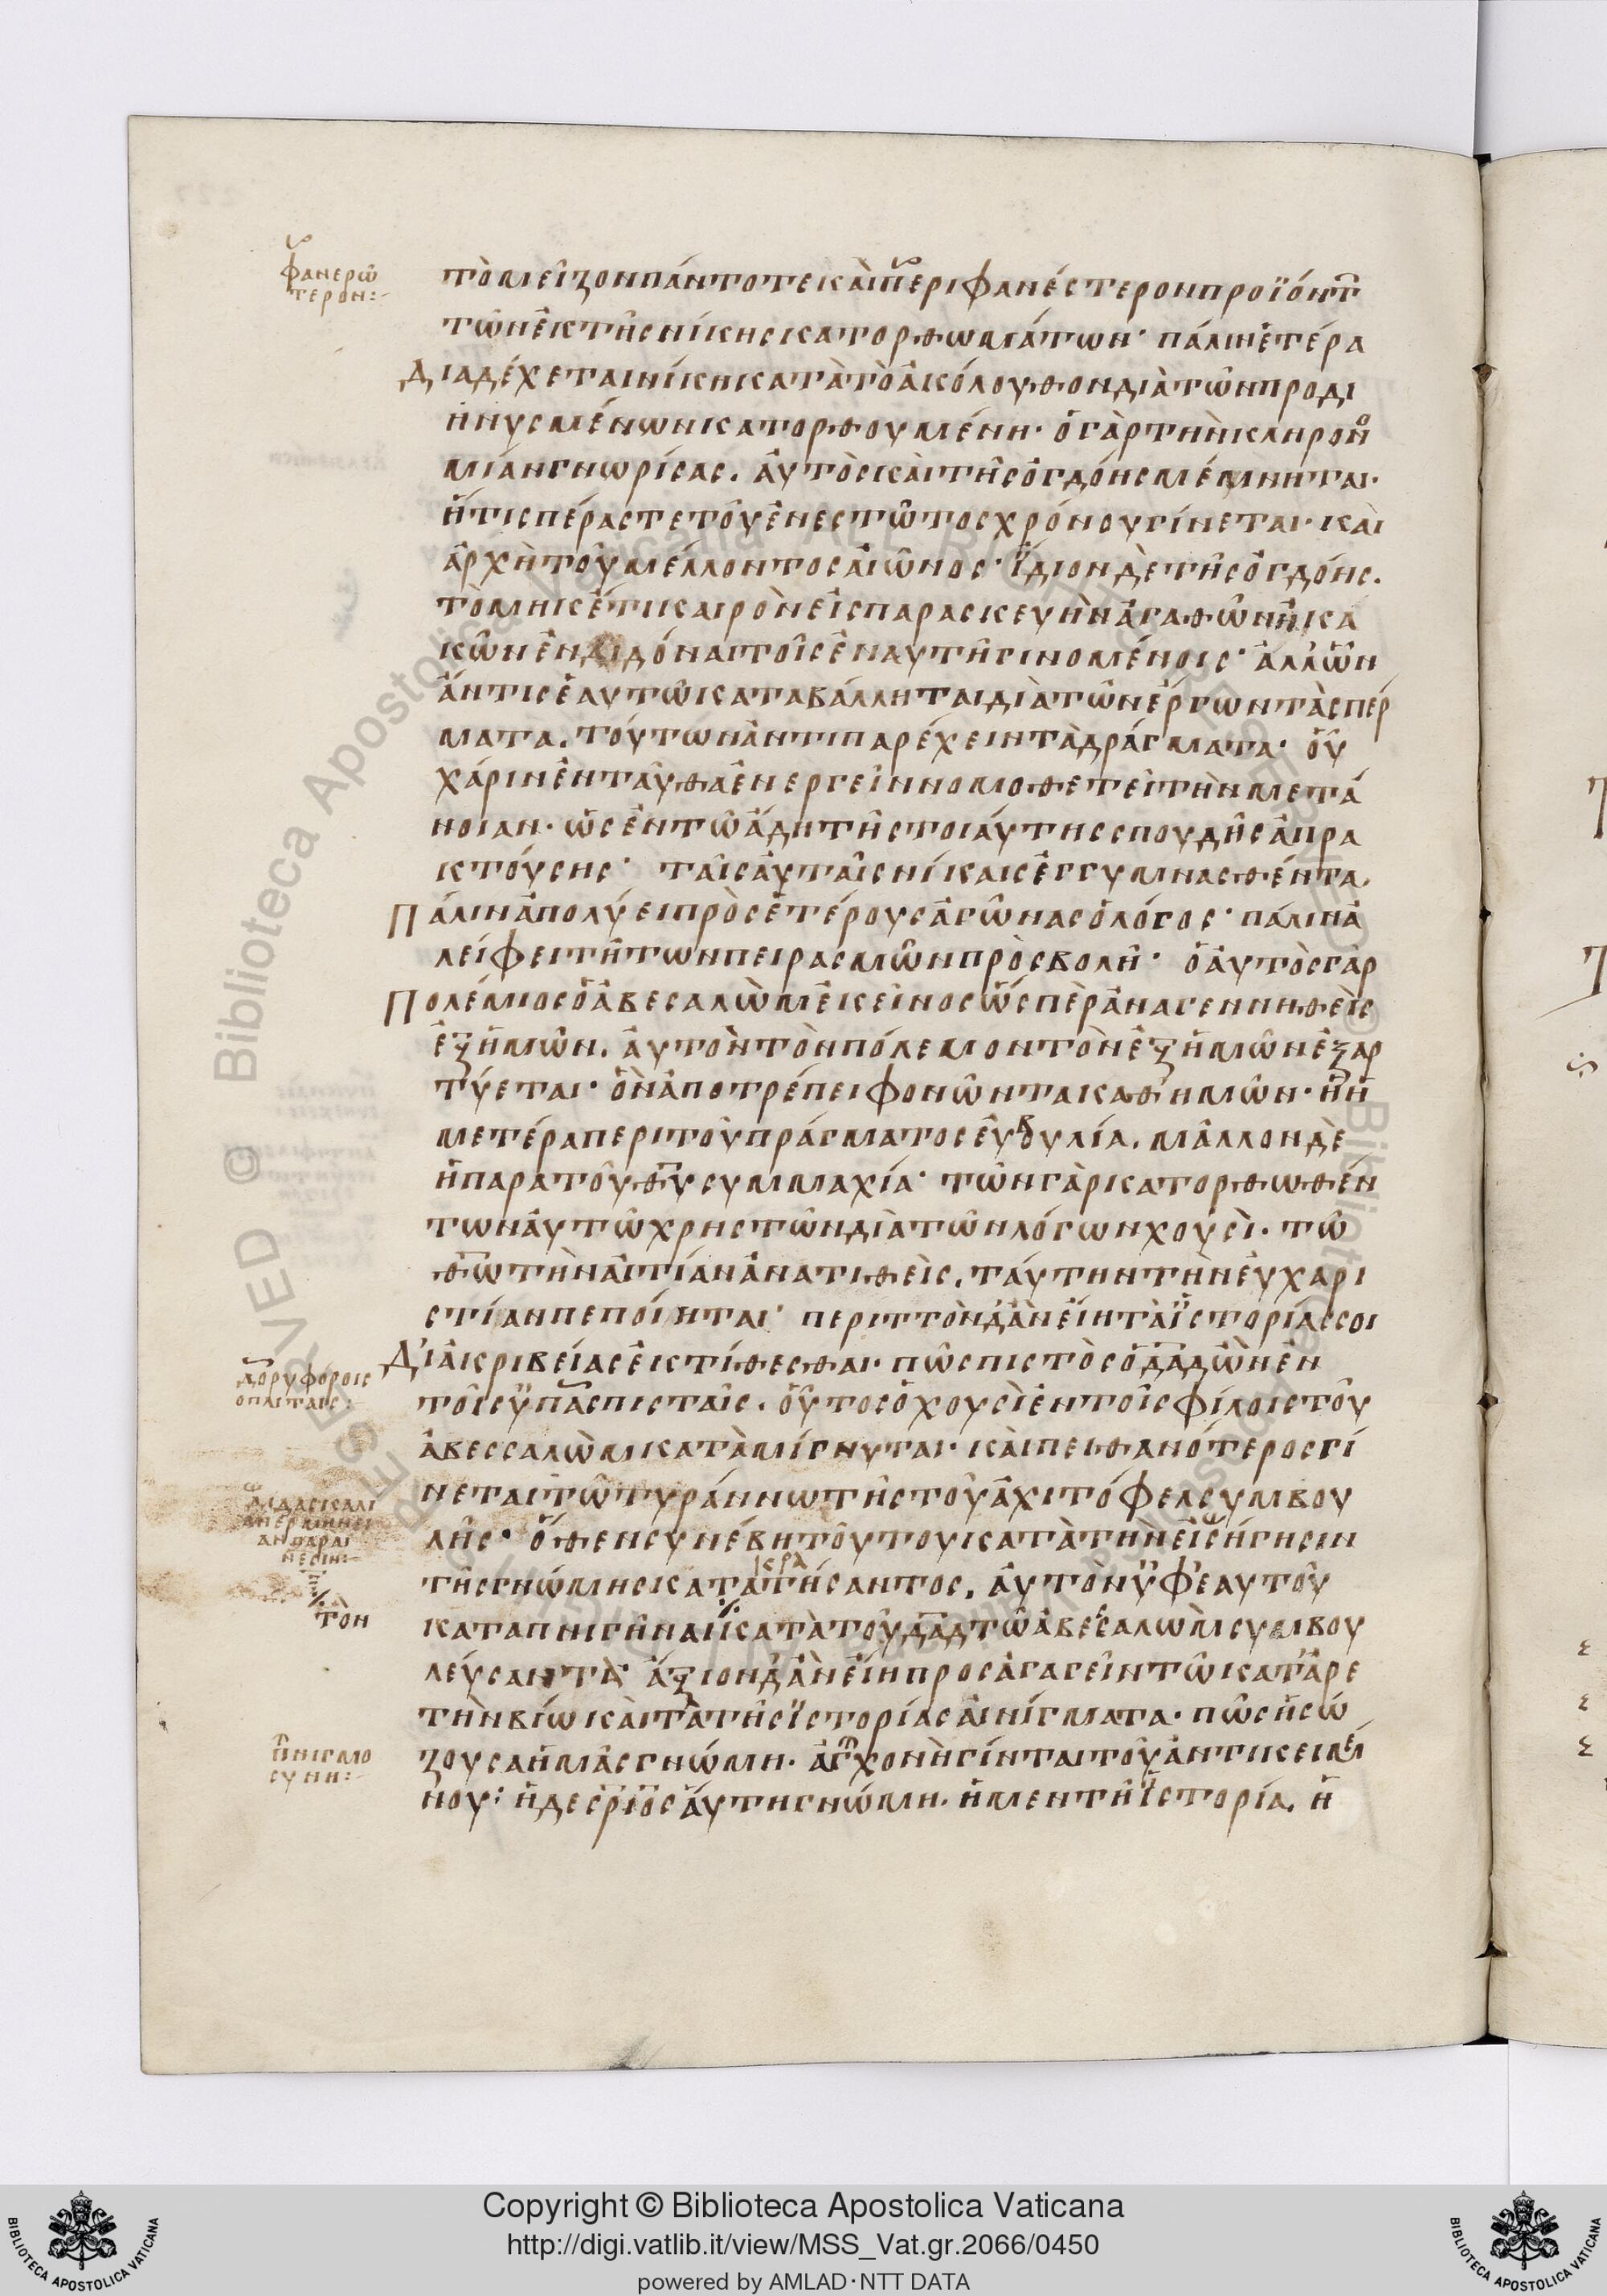 φανερώ
τερον:-
τὸ μεῖζον πάντοτε καὶ περιφανέστερον προϊόντ
τῶν ἐκ τῆς νίκης κατορθωμάτων· πάλιν ἑτέρα
διαδέχεται νίκη κατὰ τὸ ἀκόλουθον διὰ τῶν προδι
ηνυσμένων κατορθουμένη· ὁ γὰρ τὴν κληρον
μίαν γνωρίσας. αὐτὸς καὶ τῆς ὀγδόης μέμνηται·
ἥτις πέρας τε τοῦ ἐνεστῶτος χρόνου γίνεται· καὶ
ἀρχὴ τοῦ μέλλοντος αἰῶνος· ἴδιον δὲ τῆς ὀγδόης.
τὸ μηκέτι καιρὸν εἰς παρασκευὴν ἀγαθῶν ἢ κα
κῶν ἐνδιδόναι τοῖς ἐν αὐτῇ γινομένοις· ἀλλ' ὧν
ἄν τις ἑαυτῶ καταβάλληται διὰ τῶν ἔργων τὰ σπέρ
ματα. τούτων ἀντιπαρέχειν τὰ δράγματα· οὗ
χάριν ἐνταῦθα ἐνεργεῖν νομοθετεῖ τὴν μετά
νοιαν· ὡς ἐν τῶ ἅδη τῆς τοιαύτης σπουδῆς ἀπρα
κτούσης· ταῖς αὐταῖς νίκαις ἐγγυμνασθέντα
Πάλιν ἀπολύει πρὸς ἑτέρους ἀγῶνας ὁ λόγος· πάλιν ἀ
λείφει τῆ τῶν πειρασμῶν προσβολῆ· ὁ αὐτὸς γὰρ
Πολέμιος ὁ ἀβεσαλὼμ ἐκεῖνος ὥσπερ ἀναγεννηθεὶς
ἐξ ἡμῶν. αὐτὸν τὸν πόλεμον τὸν ἐξ ἡμῶν ἐξαρ
τύεται· ὃν ἀποτρέπει φονῶντα καθ' ἡμῶν· ἡ ἡ
μετέρα περὶ τοῦ πράγματος εὐβουλία. μᾶλλον δὲ
ἡ παρὰ τοῦ θυ συμμαχία· τῶν γὰρ κατορθωθέν
των αὐτῶ χρηστῶν διὰ τῶν λόγων χουσὶ. τῶ
θω τὴν αἰτίαν ἀνατιθεὶς. ταύτην τὴν εὐχαρι
στίαν πεποίηται· περιττὸν δ' ἂν εἴη τὰ ἱστορίας σοι
Δι' ἀκριβείας ἐκτίθεσθαι· πῶς πιστὸς ὁ δαδ ὢν ἐν
δορυφόροις
οπλίταις:-
τοῖς ὑπασπισταῖς. οὗτος ὁ χουσὶ ἐν τοῖς φίλοις τοῦ
ἀβεσσαλὼμ καταμίγνυται· καὶ πειθανότερος γί
νεται τῶ τυράννω τῆς τοῦ ἀχιτόφελ συμβου
λῆς· ὅθεν συνέβη τούτου κατὰ τὴν εἰσήγησιν
τῆς γνώμης κρα
κατατήσαντος. αὐτὸν ὑφ' ἑαυτοῦ
τὸν
καταπνιγῆναι κατὰ τοῦ δαδ τῶ ἀβεσσαλὼμ συμβου
λεύσαντα· ἄξιον δ' ἂν εἴη προσαγαγεῖν τῶ κατ' ἀρε
τὴν βίω καὶ τὰ τῆς ἱστορίας αἰνίγματα· πῶς ἡ σώ
πνιγμο
συνη:-
ζουσα ἡμᾶς γνώμη· ἀγχονὴ γίνται τοῦ ἀντικειμέ
νου: ἡ δε σριος αὕτη γνώμη. ἡ μεν τῆ ἱστορία. ἡ